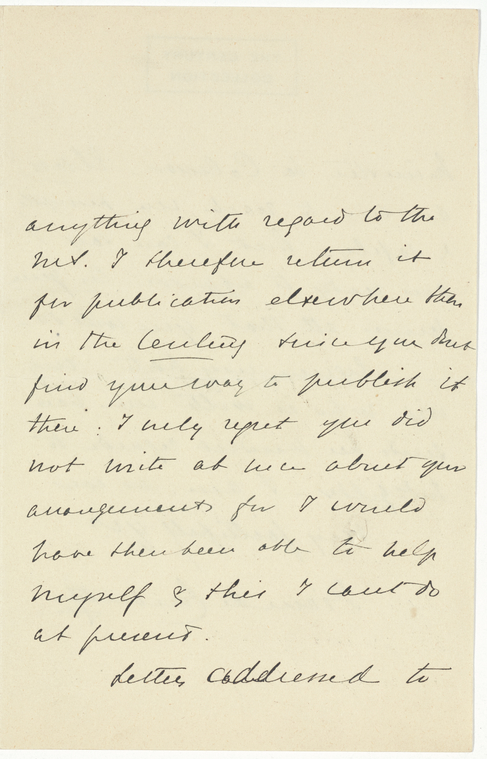 anything with regard to the
MS. I therefore return it
for publication elsewhere than
in the Century since you dont
find your way to publish it
there. I only regret you did
not write at once about your
arrangements for I would
have then been able to help
myself & this I cant do
at present.
Letters addressed to